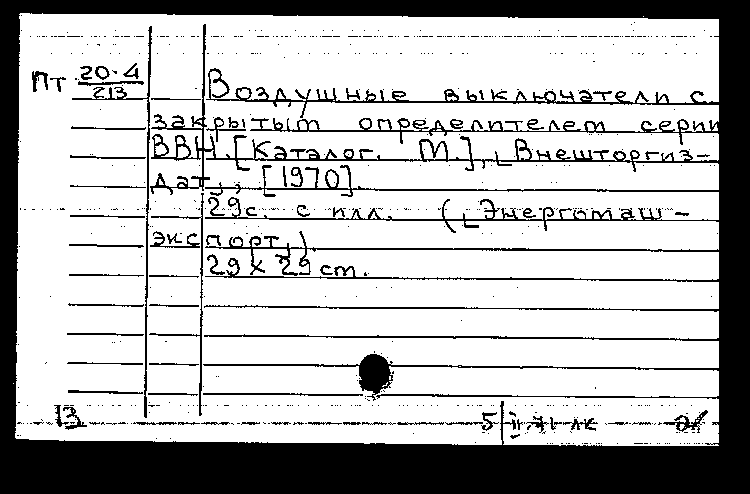 Пт 20·4/213 Воздушные выключатели с
закрытым определителем серии
ВВН. [Каталог. М.], „Внешторгиз-
дат", [1970].
29с. с илл. („Энергомаш-
экспорт").
29 х 29 ст.
13 5 | II.71 лк